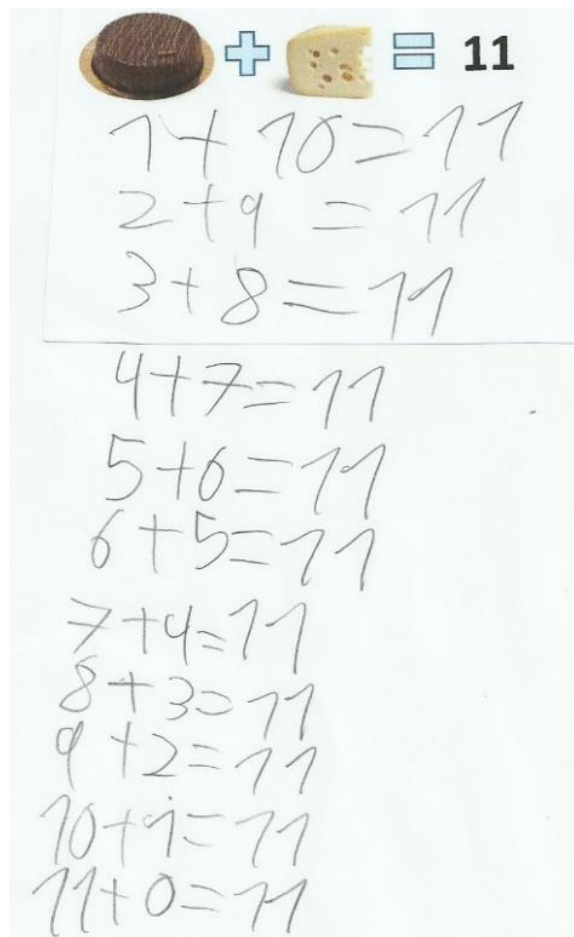 + = 11
1+10=11
2+9=11
3+8=11
4+7=11
5+6=11
6+5=11
7+4=11
8+3=11
9+2=11
10+1=11
11+0=11